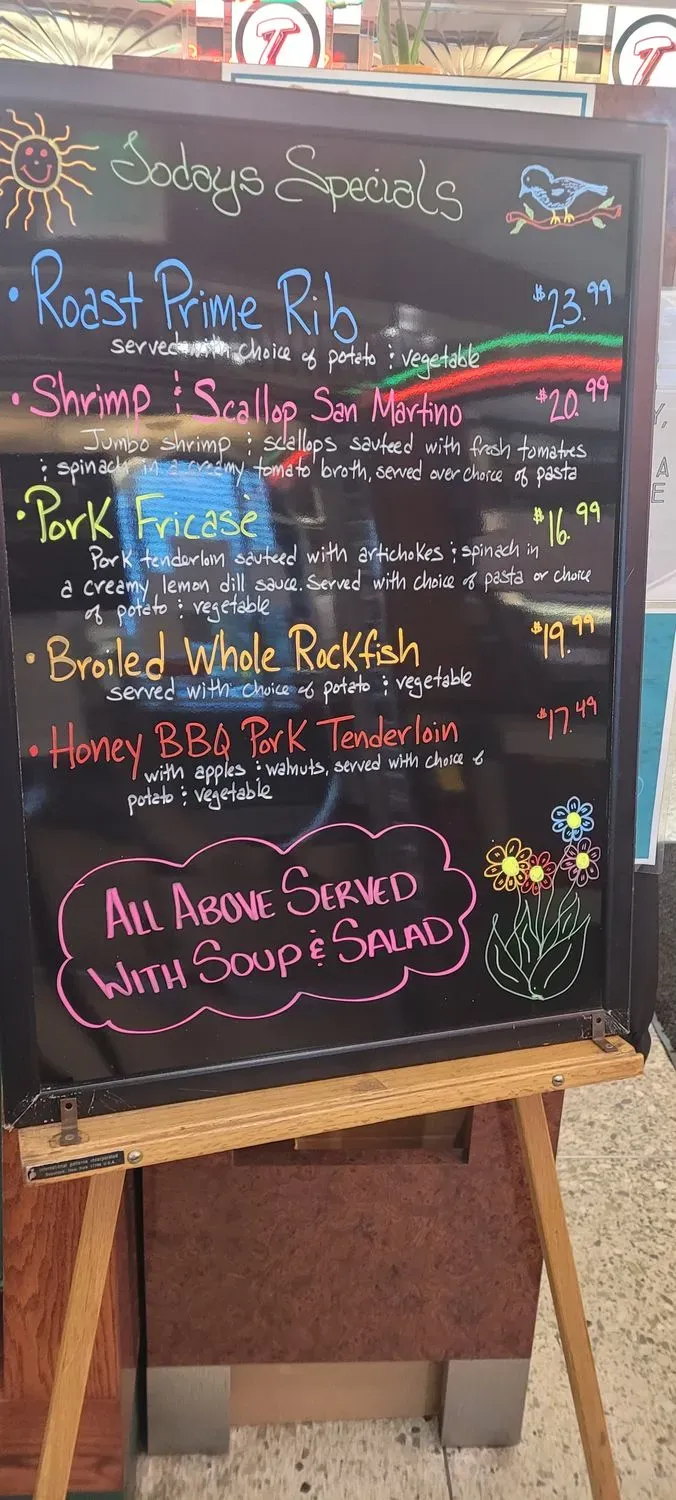 T T
Todays Specials
• Roast Prime Rib $23.99
served with choice of potato & vegetable
• Shrimp & Scallop San Martino $20.99
Jumbo shrimp & scallops sauteed with fresh tomatoes
& spinach in a creamy tomato broth, served over choice of pasta
• Pork Fricasé $16.99
Pork tenderloin sauteed with artichokes & spinach in
a creamy lemon dill sauce. Served with choice of pasta or choice
of potato & vegetable
• Broiled Whole Rockfish $19.99
served with choice of potato & vegetable
• Honey BBQ Pork Tenderloin $17.49
with apples & walnuts, served with choice of
potato & vegetable
ALL ABOVE SERVED
WITH SOUP & SALAD